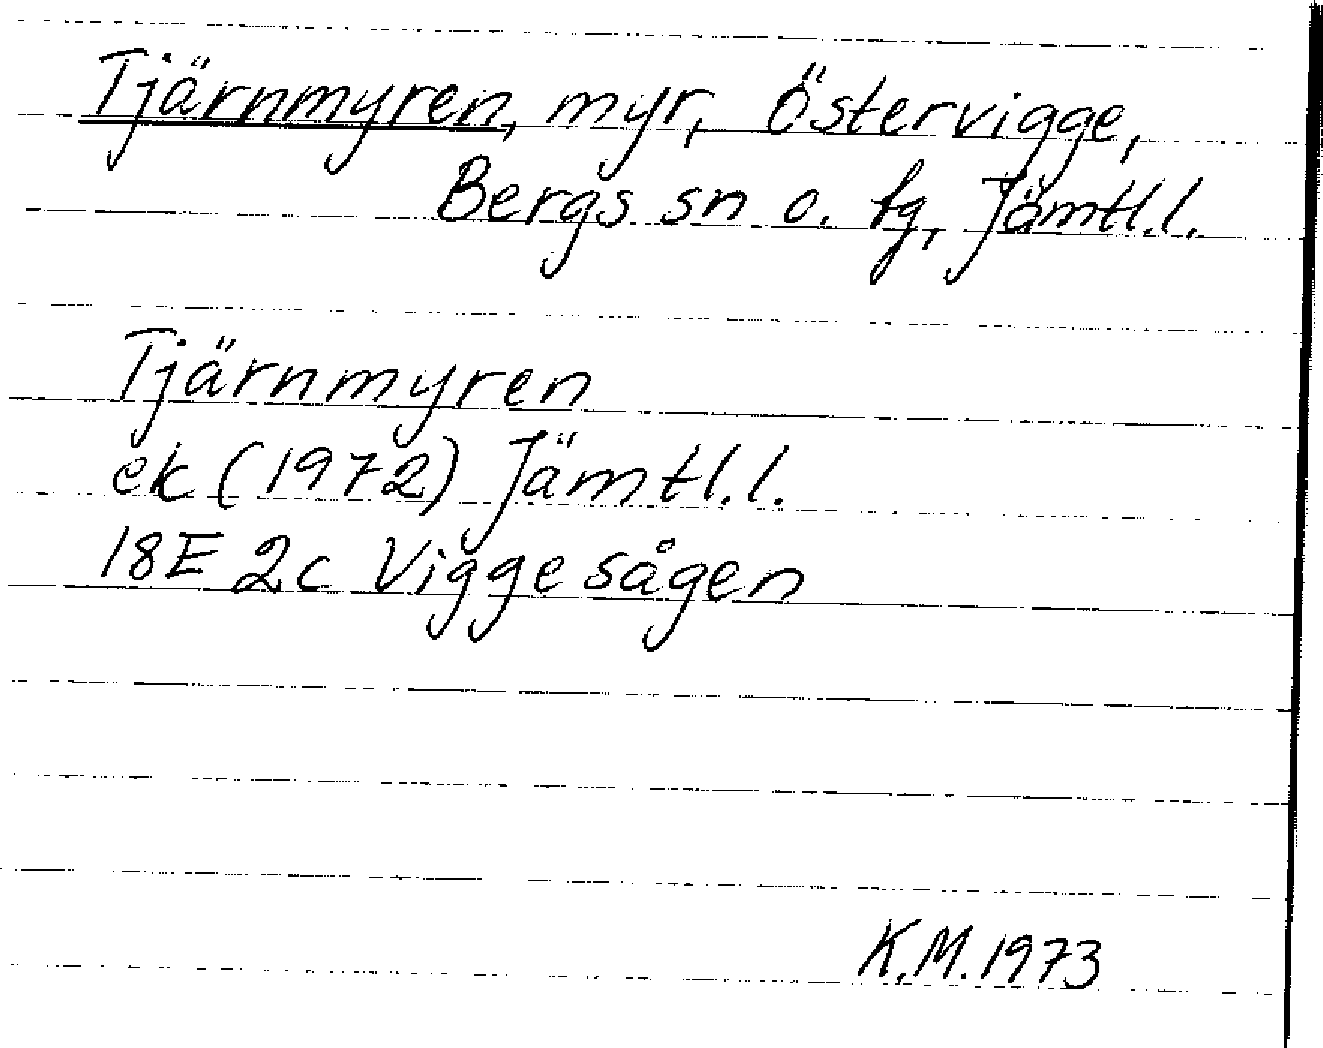 Tjärnmyren, myr, Östervigge,
Bergs sn o. tg, Jämtl.l.
Tjärnmyren
ek (1972) Jämtl.l.
18E 2c Viggesågen
K.M. 1973